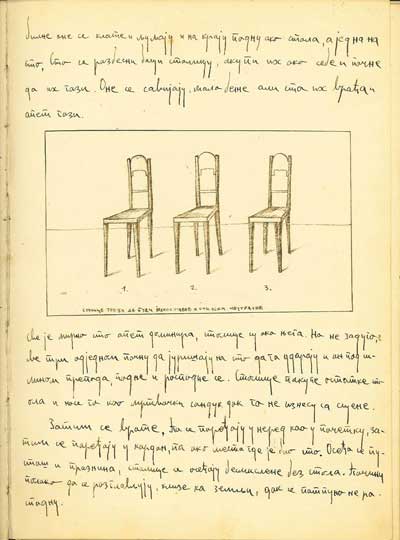 билне оне се клате и љуљају и на крају падну око стола, а једна на
сто, сто се разбесни баци столицу, скупи их око себе и почне
да их гази. Оне се савијају, мало беже али ста их враћа и
опет гази.
1. 2. 3.
столице треба да буду једноставне
Све је мирно сто опет доминира, столице су око њега. На не задуго,
све три одједном почну да јуришају на сто да га ударају и он под
препада, падне и распадне се. Столице покупе остатке
стола и носе га као мртвачки сандук док га не изнесу са сцене.
Затим се врате, па се поређају у неред као у почетку, за-
тим се поређају у кардан, па око места где је био сто. Осећа се пу-
стош и празнина, столице се осећају бесмислене без стола. Почињу
полако да се расклапају, клизе ка земљи, док се потпуно не ра-
спадну.